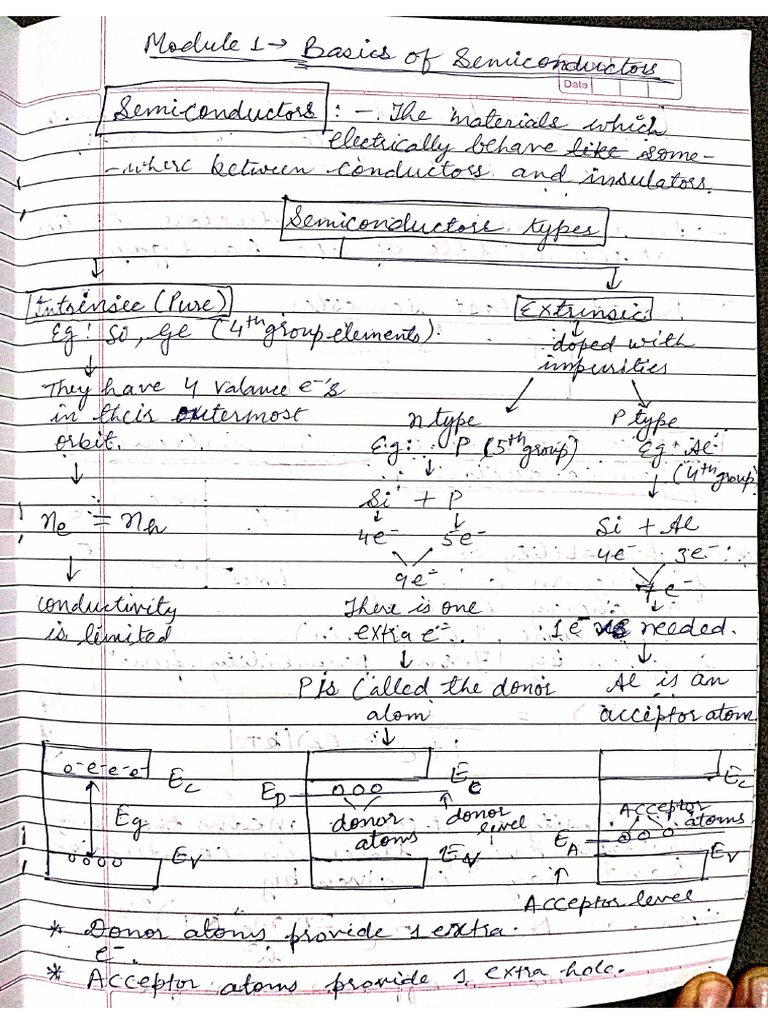 Module 1 → Basics of Semiconductors
Date
Semiconductors : - The materials which
electrically behave like some-
-where between conductors and insulators.
Semiconductors types
Intrinsic (Pure)
Eg: Si, Ge (4th group elements).
They have 4 valance e-'s
in their outermost
orbit.
ne = nh
conductivity
is limited
Extrinsic
doped with
impurities
n type
Eg: P (5th group)
Si + P
4e- 5e-
9e-
There is one
extra e-.
P is called the donor
atom
P type
Eg: Al
(4th group)
Si + Al
4e- 3e-
7e-
1e- is needed.
Al is an
acceptor atom
e-e-e-e- Ec
Eg
Ev
ED Ec
donor
atoms
donor
level
Ev
Ec
Acceptor
atoms
EA
Ev
Acceptor level
* Donor atoms provide 1 extra
e-.
* Acceptor atoms provide 1 extra hole.